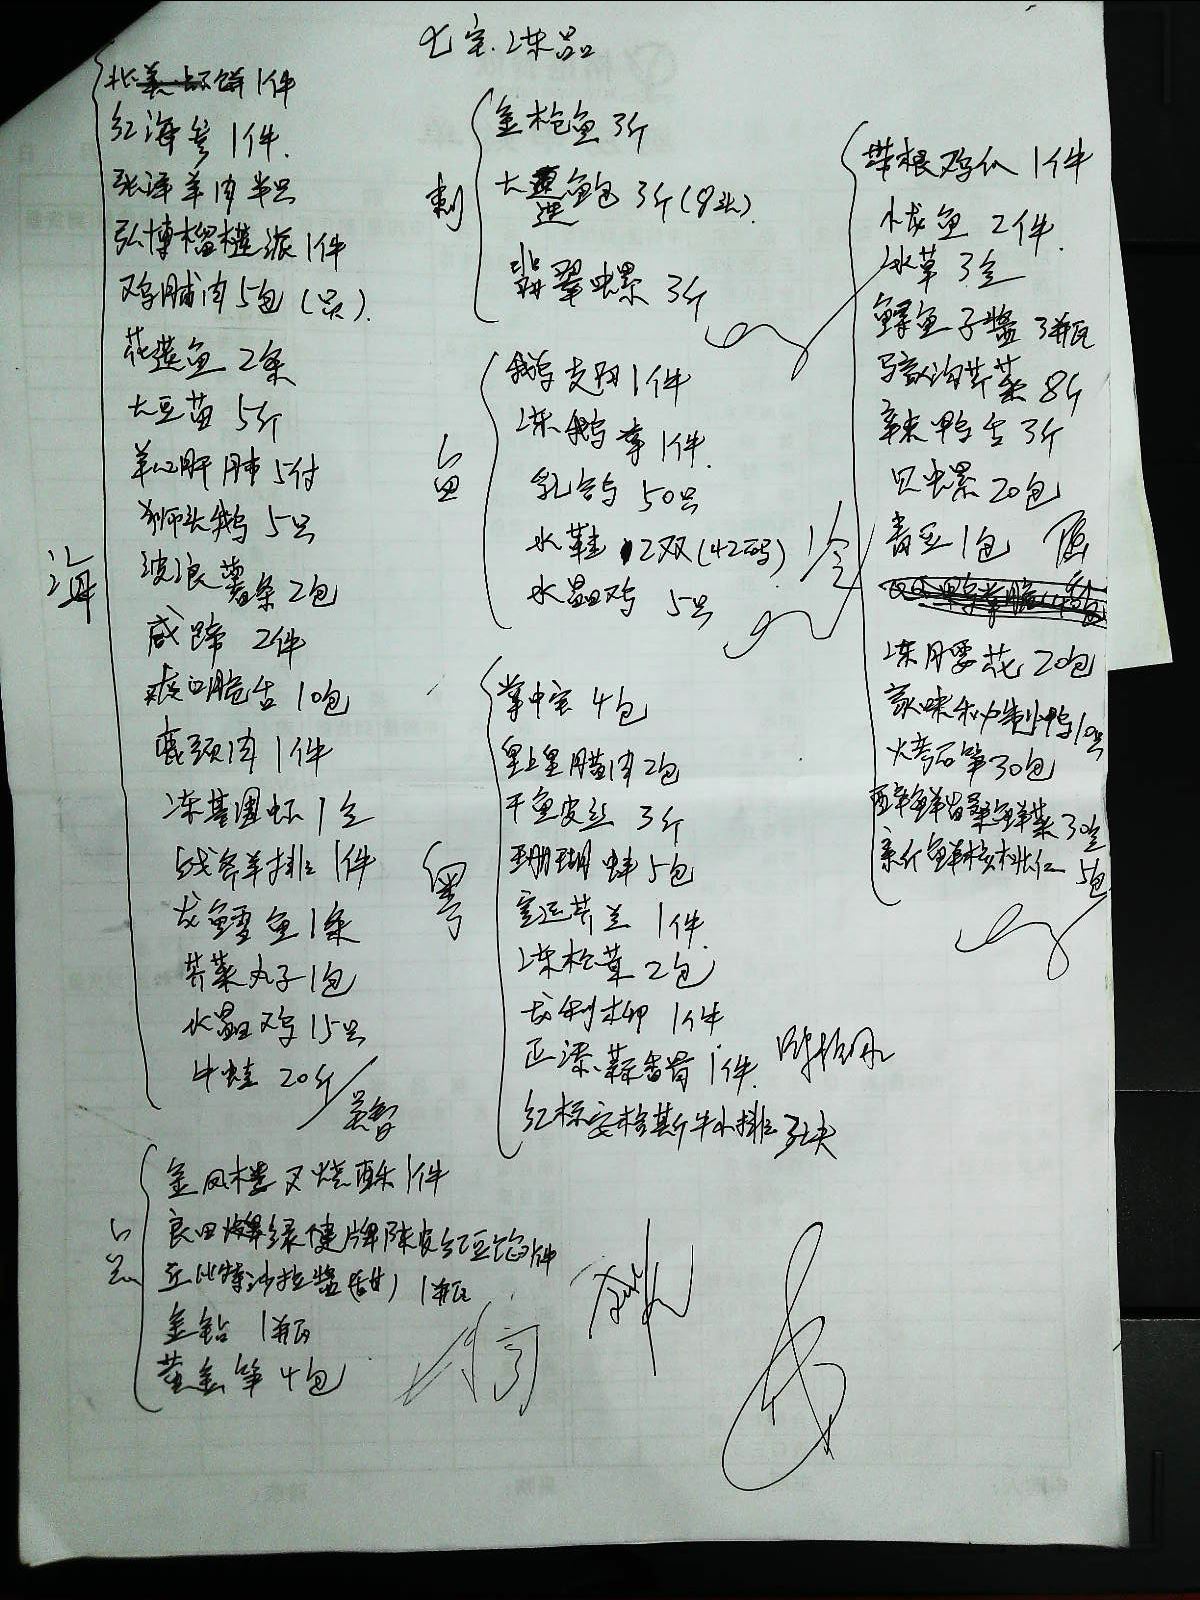 七宝.冻品
海
饼1件
红海参 1件.
张泽羊肉半只
弘博榴梿派1件
鸡脯肉5包(只).
花莲鱼 2条
大豆苗 5斤
羊心肝肺5付
狮头鹅 5只
波浪薯条2包
咸蹄 2件
爽口脆舌 10包
鹿颈肉 1件
冻基围虾 1盒
战斧羊排 1件
龙鳕鱼1条
荠菜丸子1包
水晶鸡 15只
牛蛙 20斤
刺
金枪鱼 3斤
大连鲍 3斤(8头).
翡翠螺 3斤
卤
鹅 1件
冻鹅掌 1件.
乳鸽 50只
水鞋 2双(42码)
5只
粤
掌中宝 4包
皇上皇腊肉2包
干鱼皮丝 3斤
珊瑚蚌5包
芥兰 1件.
冻松草2包
龙利柳 1件
蒜香骨1件.
红标安格斯牛小排
点
金凤楼叉烧酥1件
良田牌绿健牌陈皮红豆馅1件
丘比特沙拉酱(甜) 1瓶
金钻 1瓶
黄金笋 4包
冷
带根鸡爪 1件
鱼 2件.
冰草 3盒
鲟鱼子酱 3瓶
马家沟芹菜 8斤
辣鸭舌 3斤
贝螺 20包
青豆1包
冻腰花 20包
秘制鸭10只
火烤石笋30包
30盒
亲斤鲜核桃仁 5包